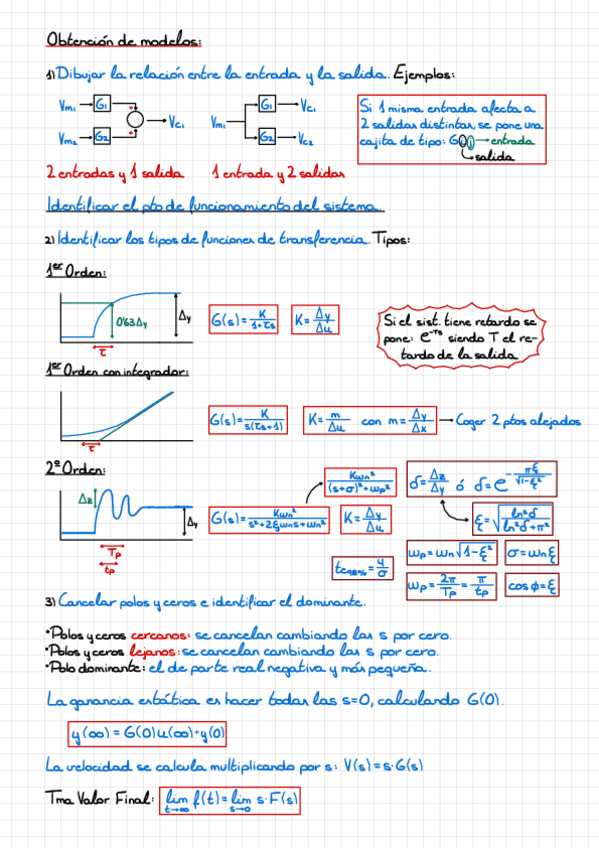 Obtención de modelos:
1) Dibujar la relación entre la entrada y la salida. Ejemplos:
Vm₁ G₁ Vc₁ Vm₂ G₂
Vm₁ G₁ Vc₁ G₂ Vc₂
Si 1 misma entrada afecta a
2 salidas distintas, se pone una
cajita de tipo: G0j → entrada
salida
2 entradas y 1 salida
1 entrada y 2 salidas
Identificar el pto de funcionamiento del sistema.
2) Identificar los tipos de funciones de transferencia. Tipos:
1er Orden:
0'63Δy Δy τ
G(s) = K/(1+τs)
K = Δy/Δu
Si el sist. tiene retardo se
pone: e^-Ts siendo T el re-
tardo de la salida
1er Orden con integrador:
τ
G(s) = K/(s(τs+1))
K = m/Δu con m = Δy/Δx → Coger 2 ptos alejados
2º Orden:
Δz Δy Tp tp
G(s) = Kωn²/(s²+2ξωns+ωn²)
Kωn²/((s+σ)²+ωp²)
K = Δy/Δu
δ = Δz/Δy ó δ = e^(-πξ/√(1-ξ²))
ξ = √(ln²δ/(ln²δ+π²))
ωp = ωn√(1-ξ²)
σ = ωnξ
te≈98% = 4/σ
ωp = 2π/Tp = π/tp
cosϕ = ξ
3) Cancelar polos y ceros e identificar el dominante.
•Polos y ceros cercanos: se cancelan cambiando las s por cero.
•Polos y ceros lejanos: se cancelan cambiando las s por cero.
•Polo dominante: el de parte real negativa y más pequeña.
La ganancia estática es hacer todas las s=0, calculando G(0).
y(∞) = G(0)u(∞)+y(0)
La velocidad se calcula multiplicando por s: V(s) = s·G(s)
Tma Valor Final: lim t→∞ f(t) = lim s→0 s·F(s)